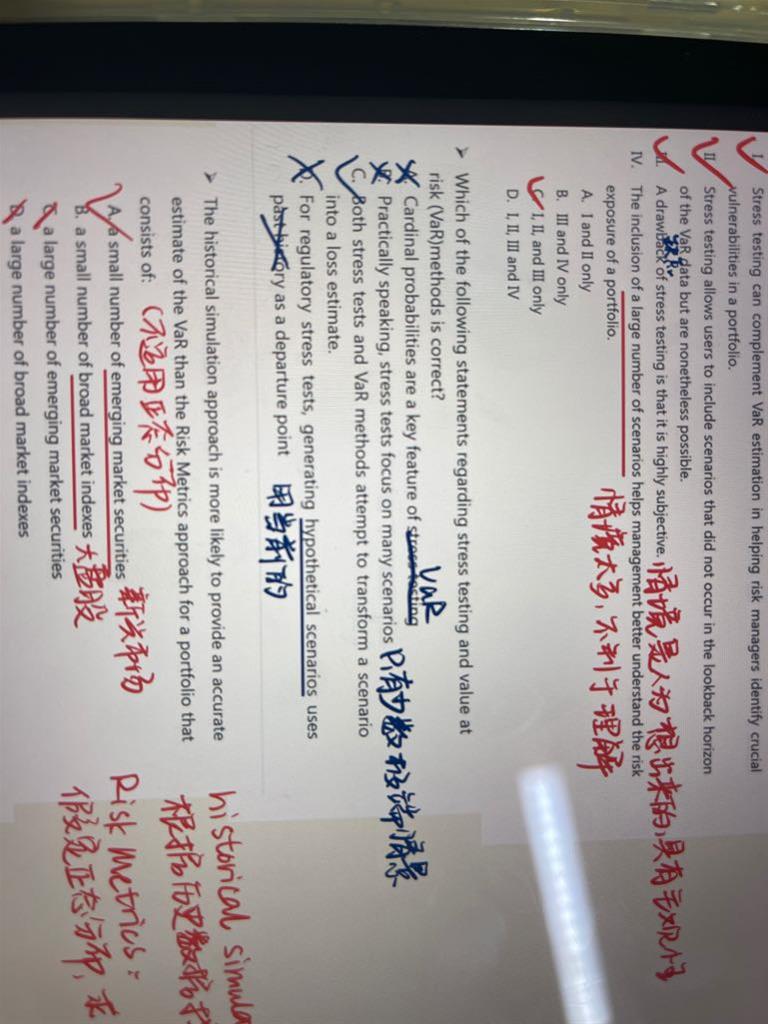 I. Stress testing can complement VaR estimation in helping risk managers identify crucial
vulnerabilities in a portfolio.
II. Stress testing allows users to include scenarios that did not occur in the lookback horizon
of the VaR data but are nonetheless possible.
III. A drawback of stress testing is that it is highly subjective. 情境是人为想出来的,具有主观性
IV. The inclusion of a large number of scenarios helps management better understand the risk
exposure of a portfolio. 情境太多,不利于理解
A. I and II only
B. III and IV only
C. I, II, and III only
D. I, II, III and IV
➤ Which of the following statements regarding stress testing and value at
risk (VaR)methods is correct?
A. Cardinal probabilities are a key feature of stress testing VaR
B. Practically speaking, stress tests focus on many scenarios 只有少数极端情景
C. Both stress tests and VaR methods attempt to transform a scenario
into a loss estimate.
For regulatory stress tests, generating hypothetical scenarios uses
past history as a departure point 用当前的
➤ The historical simulation approach is more likely to provide an accurate
estimate of the VaR than the Risk Metrics approach for a portfolio that
consists of: (不适用正态分布)
A. a small number of emerging market securities 新兴市场
B. a small number of broad market indexes 大盘股
C. a large number of emerging market securities
D. a large number of broad market indexes
historical simula
根据历史数据
Risk Metrics:
假定正态分布,求